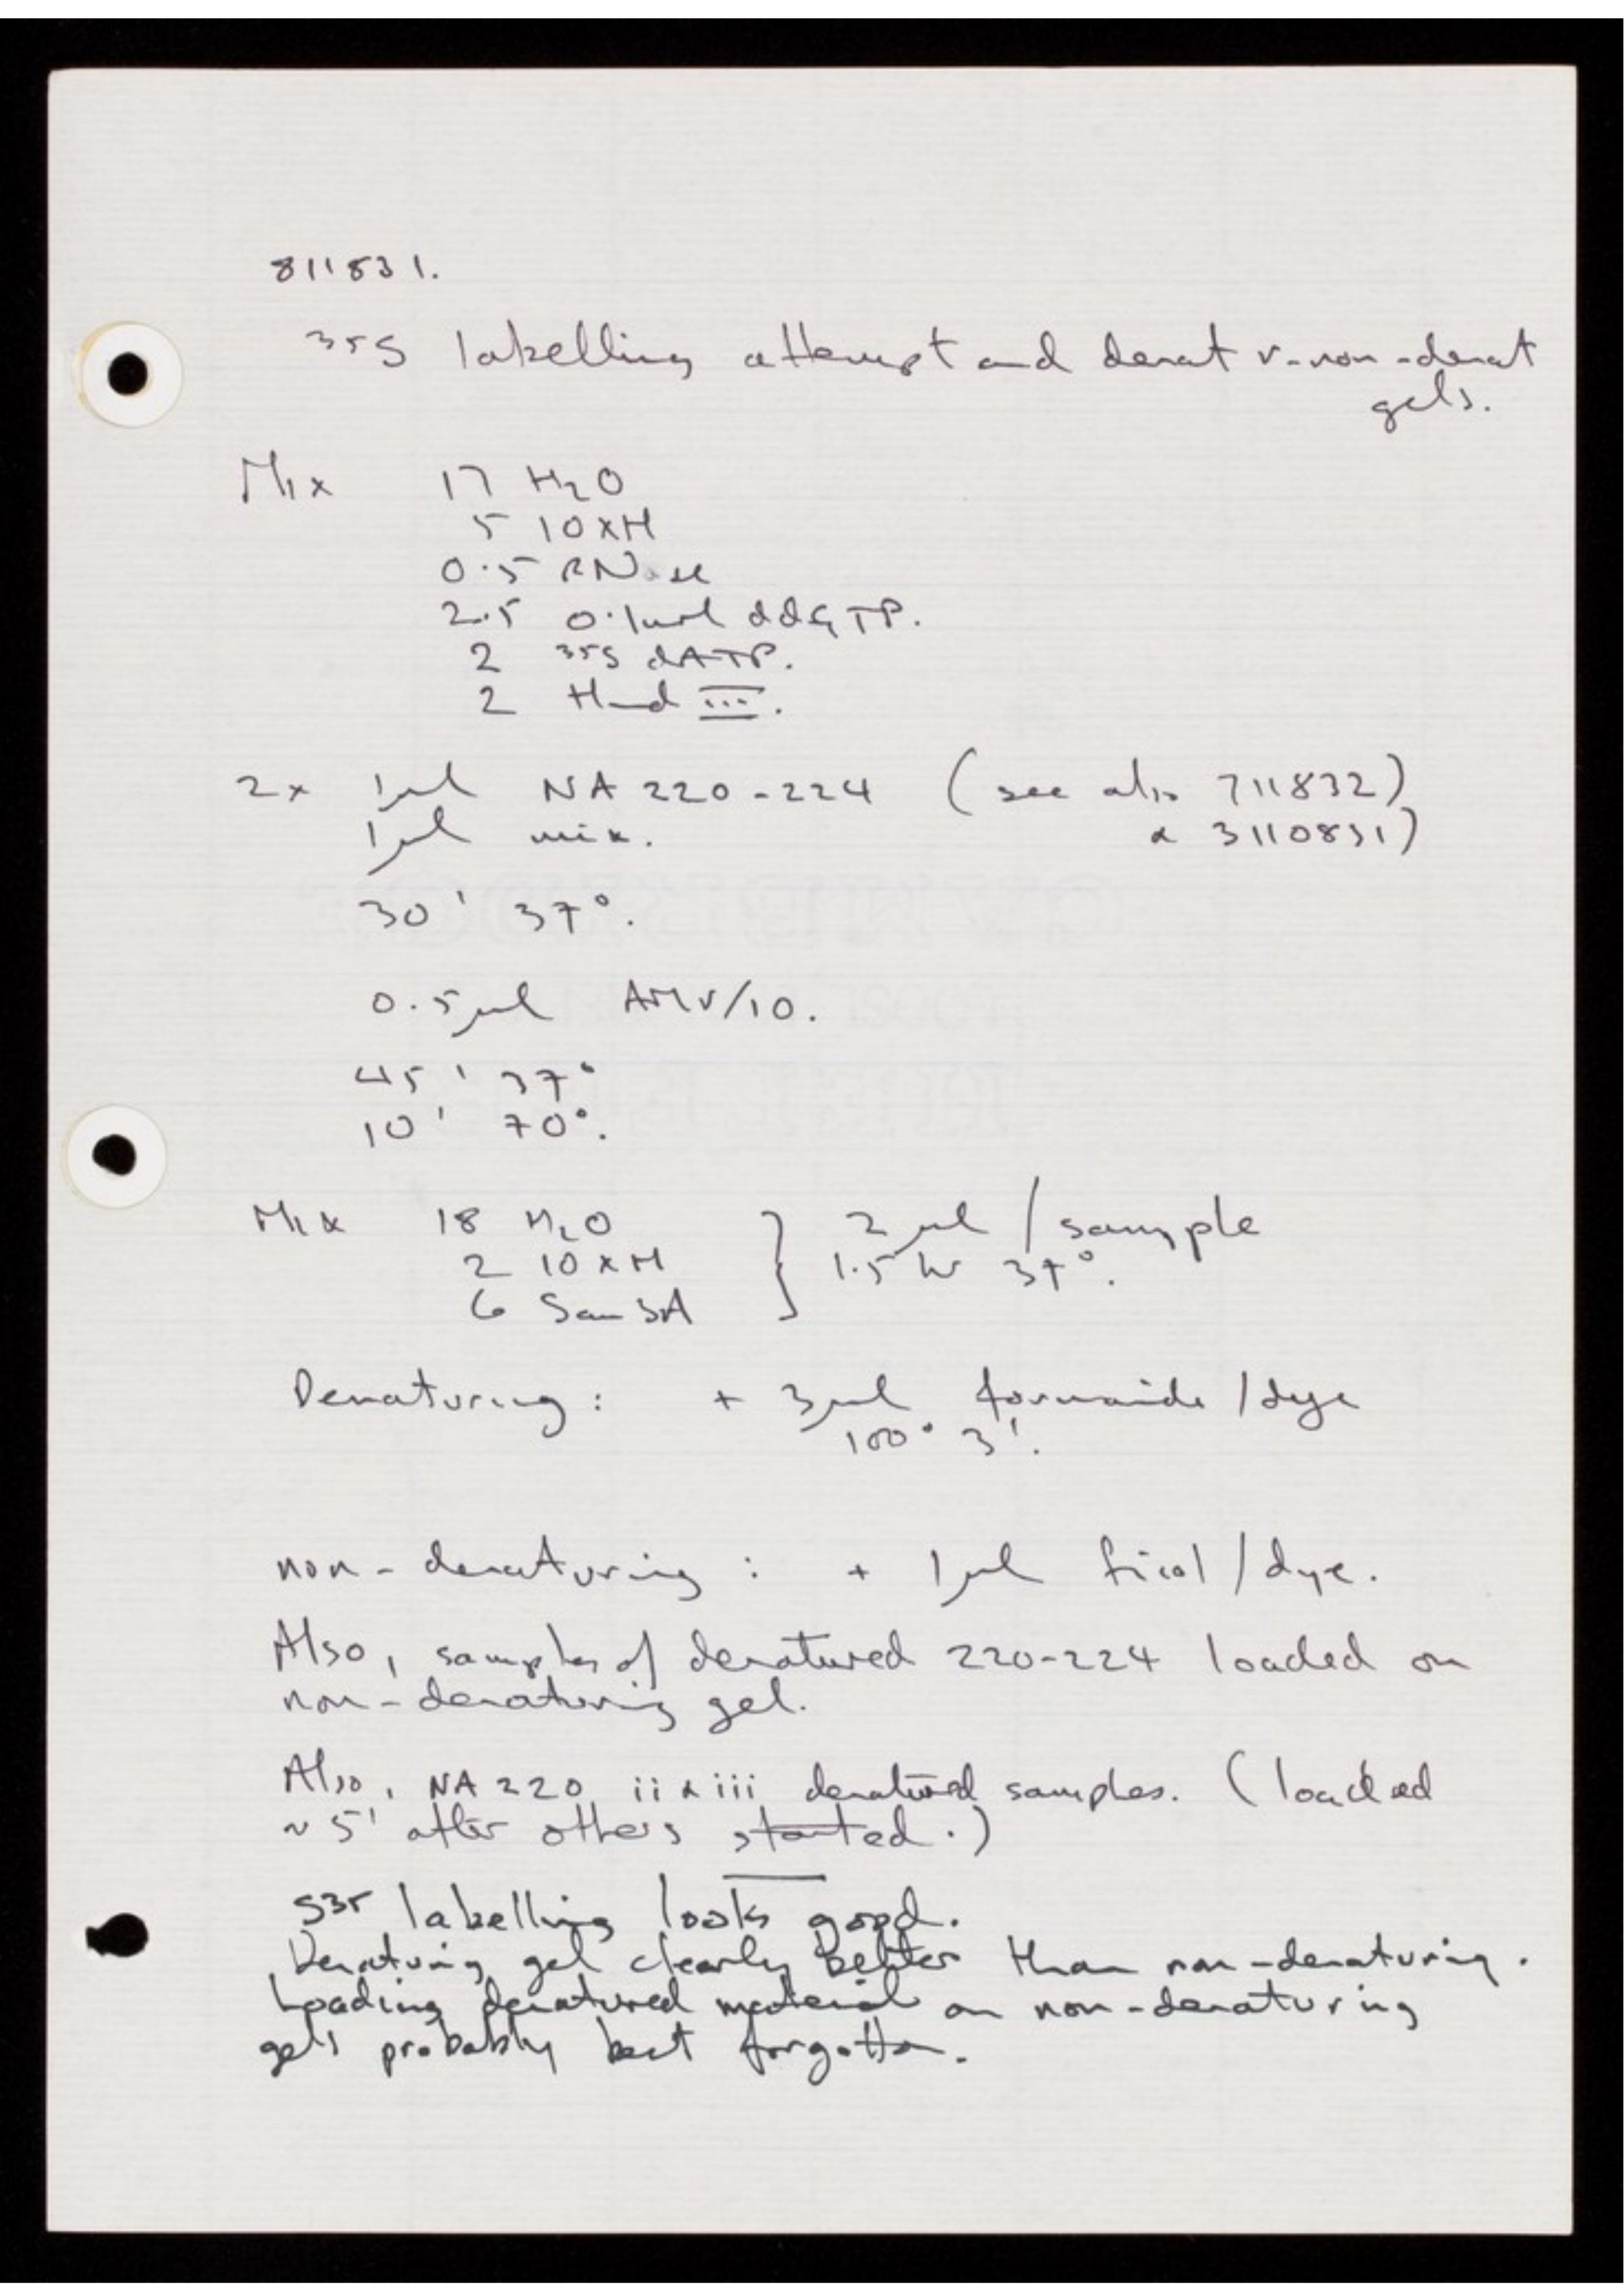 811831.
35S labelling attempt and denat v. non-denat
gels.
Mix 17 H2O
5 10xH
0.5 RNase
2.5 0.1ml ddGTP.
2 35S dATP.
2 Hind III.
2x 1µl NA 220-224 (see also 711832)
1µl mix. & 3110831)
30' 37°.
0.5µl AMV/10.
45' 37°
10' 70°.
Mix 18 H2O } 2µl / sample
2 10xH 1.5 hr 37°.
6 Sau3A
Denaturing: + 3µl formamide / dye
100° 3'.
non-denaturing: + 1µl ficol / dye.
Also, samples of denatured 220-224 loaded on
non-denaturing gel.
Also, NA 220 ii & iii denatured samples. (loaded
~5' after others started.)
S35 labelling looks good.
Denaturing gel clearly better than non-denaturing.
Loading denatured material on non-denaturing
gels probably best forgotten.